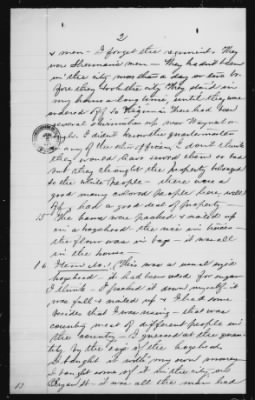 2
& men - I forget the regiments They
were Sherman's men - They hadn't been
in the city more than a day or two be
fore they took the city They staid in
my house a long time, until they were
ordered off to Virginia There had been
several
I didn't know the quartermaster
any of the other officers, I don't think
they would have served them so bad
but they thought the property belonged
to the white people - there were a
good many colored people here, well
off & had a good deal of property -
15 The bacon was packed & nailed up
in a hogshead the rice in tierces -
the flour was in bags - it was all
in the house -
16 This was a usual size
hogshead it had been used for sugar
I think - I packed it down myself it
was full & nailed up & I had some
besides that I was using - that was
country meat of different people in
the country - I guessed at the quan
tity by the size of the hogshead
I bought it with my own money
I bought some of it in the city
Bryan St - it was all the man had
17